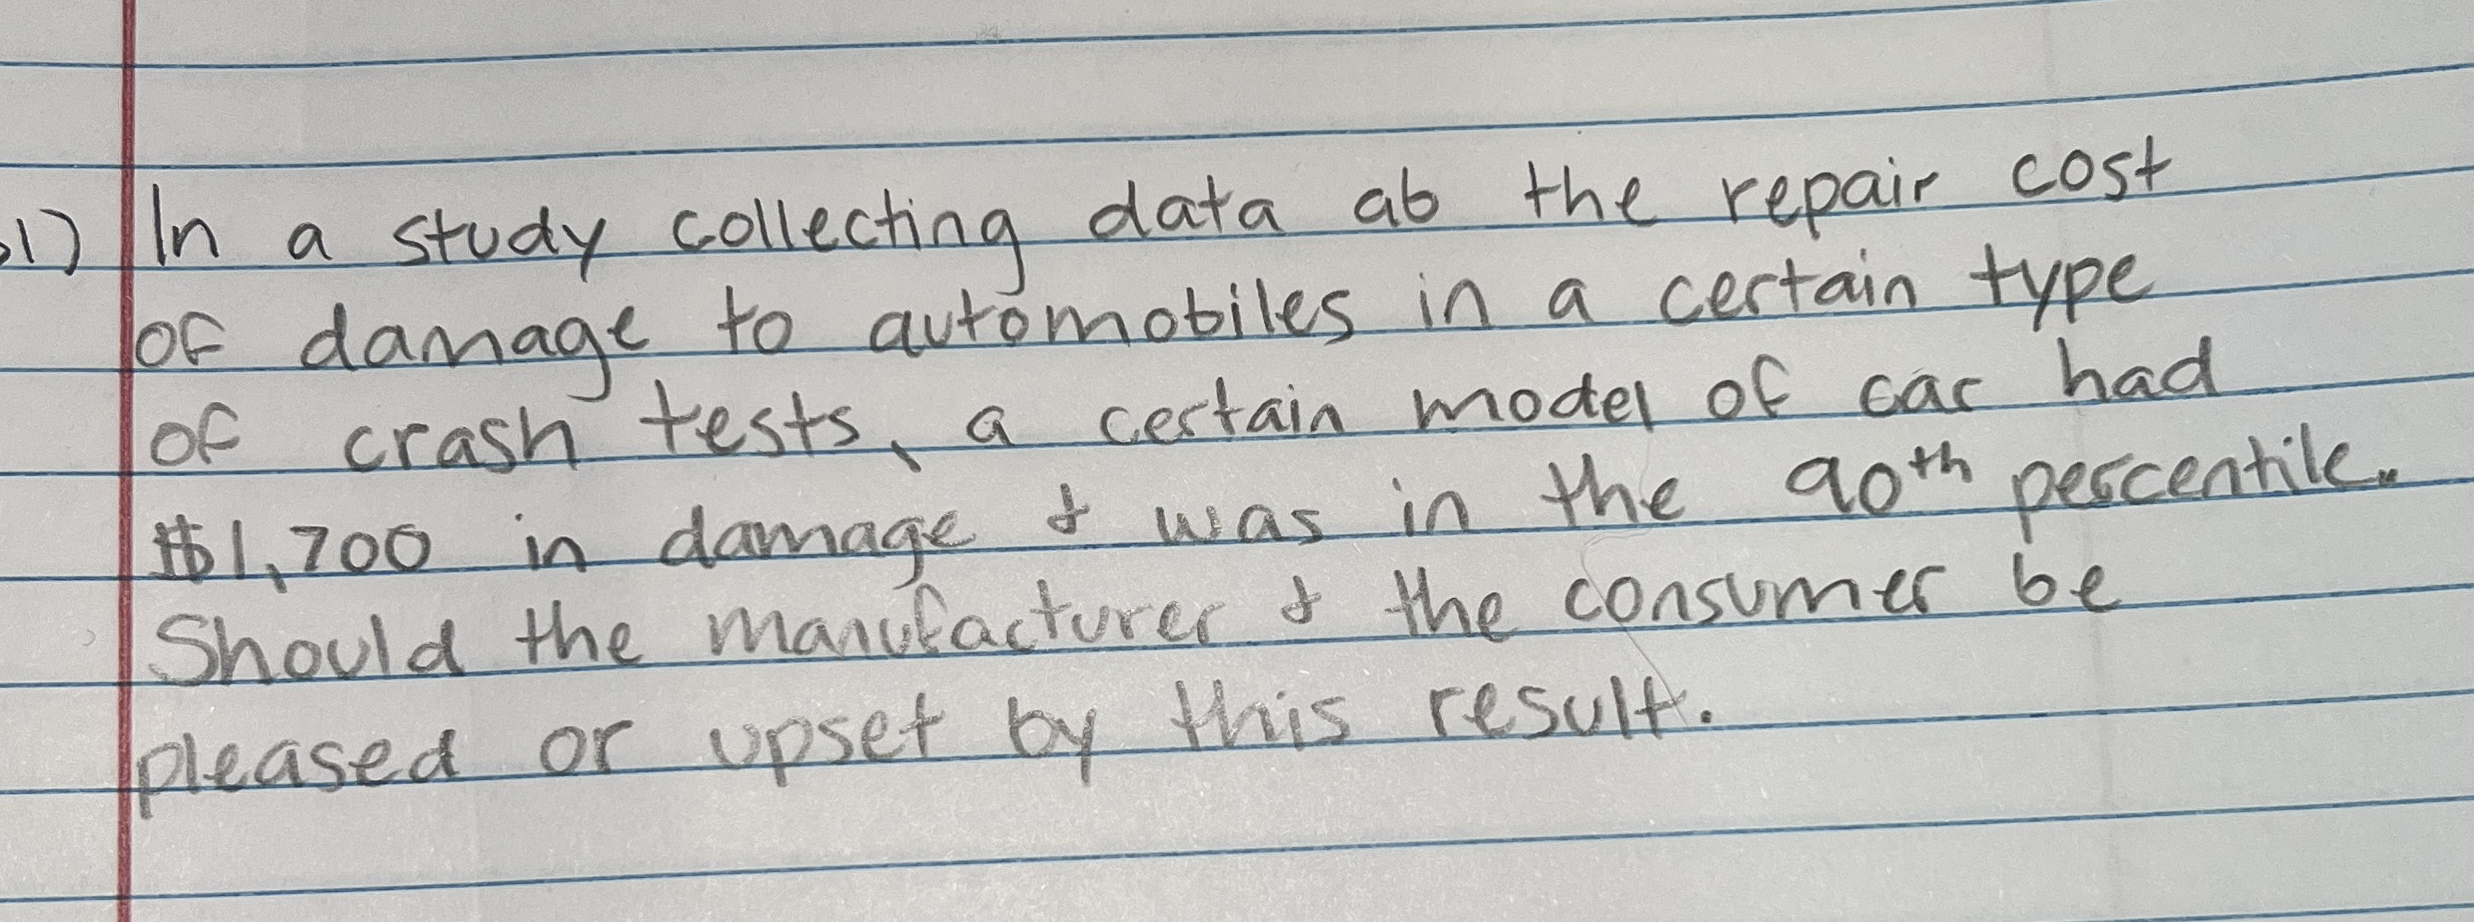 1) In a study collecting data ab the repair cost
of damage to automobiles in a certain type
of crash tests, a certain model of car had
$1,700 in damage & was in the 90th percentile.
Should the manufacturer & the consumer be
pleased or upset by this result.